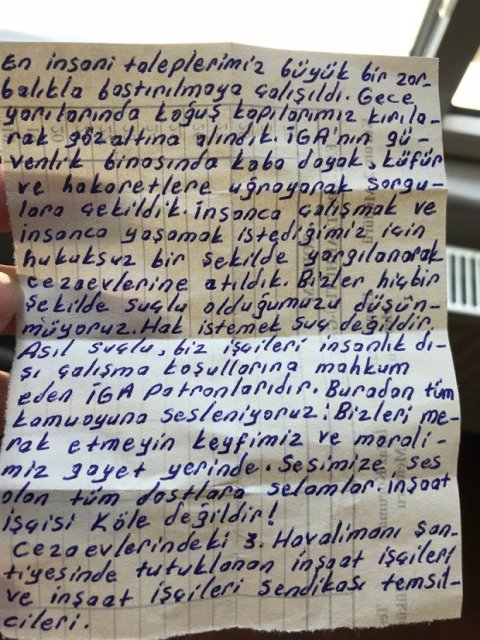 En insani taleplerimiz büyük bir zor-
balıkla bastırılmaya çalışıldı. Gece
yarılarında koğuş kapılarımız kırıla-
rak gözaltına alındık. İGA'nın gü-
venlik binasında kaba dayak, küfür
ve hakaretlere uğrayarak sorgu-
lara çekildik. İnsanca çalışmak ve
insanca yaşamak istediğimiz için
hukuksuz bir şekilde yargılanarak
cezaevlerine atıldık. Bizler hiçbir
şekilde suçlu olduğumuzu düşün-
müyoruz. Hak istemek suç değildir.
Asıl suçlu, biz işçileri insanlık dı-
şı çalışma koşullarına mahkum
eden İGA Patronlarıdır. Buradan tüm
kamuoyuna sesleniyoruz: Bizleri me-
rak etmeyin keyfimiz ve morali-
miz gayet yerinde. Sesimize ses
olan tüm dostlara selamlar. İnşaat
işçisi Köle değildir!
Cezaevlerindeki 3. Havalimanı şan-
tiyesinde tutuklanan inşaat işçileri
ve inşaat işçileri sendikası temsil-
cileri.